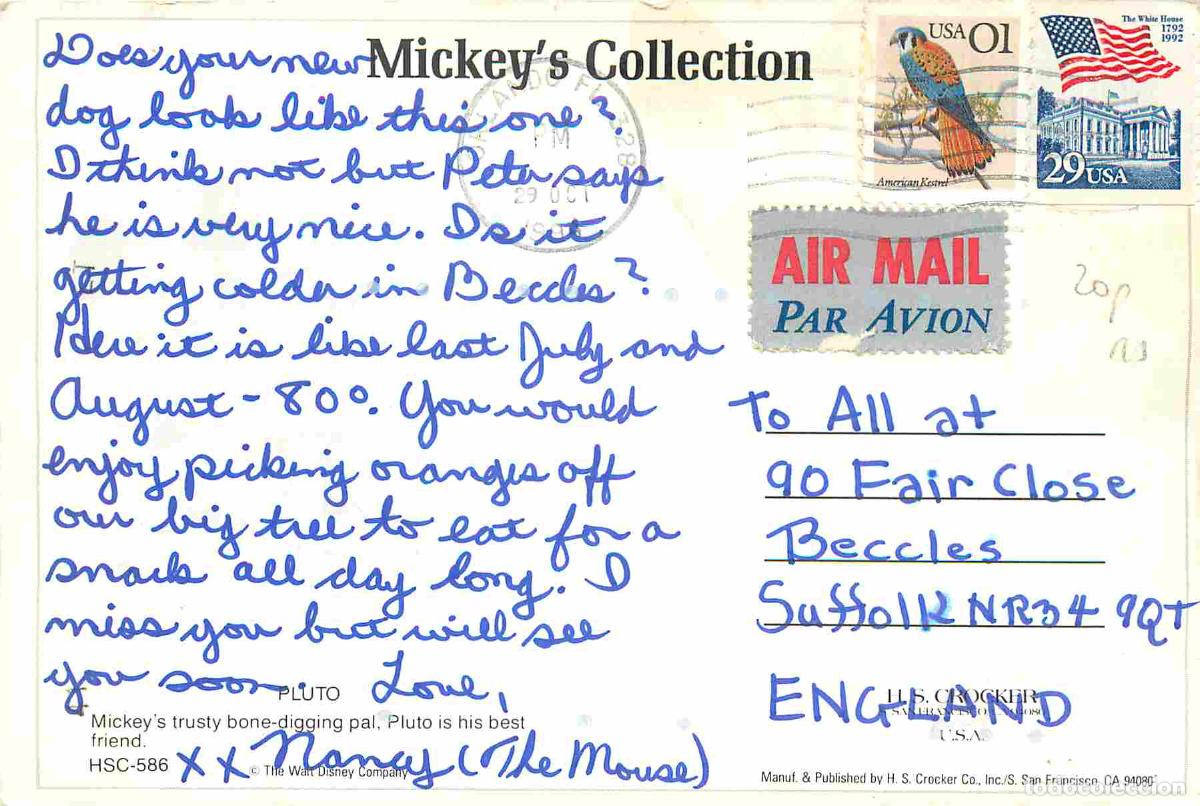 Mickey's Collection
Does your new
dog look like this one?
I think not but Peter says
he is very nice. Is it
getting colder in Beccles?
Here it is like last July and
August - 80°. You would
enjoy picking oranges off
our big tree to eat for a
snack all day long. I
miss you but will see
you soon. Love,
xx Nancy (The Mouse)
PLUTO
Mickey's trusty bone-digging pal, Pluto is his best
friend.
HSC-586
© The Walt Disney Company
USA 01
American Kestrel
The White House
1792
1992
29 USA
ORLANDO FL 328
PM
29 OCT
AIR MAIL
PAR AVION
20p
To All at
90 Fair Close
Beccles
Suffolk NR34 9QT
ENGLAND
H. S. CROCKER
SAN FRANCISCO, CA 94080
U.S.A.
Manuf. & Published by H. S. Crocker Co., Inc./S. San Francisco, CA 94080
todocoleccion